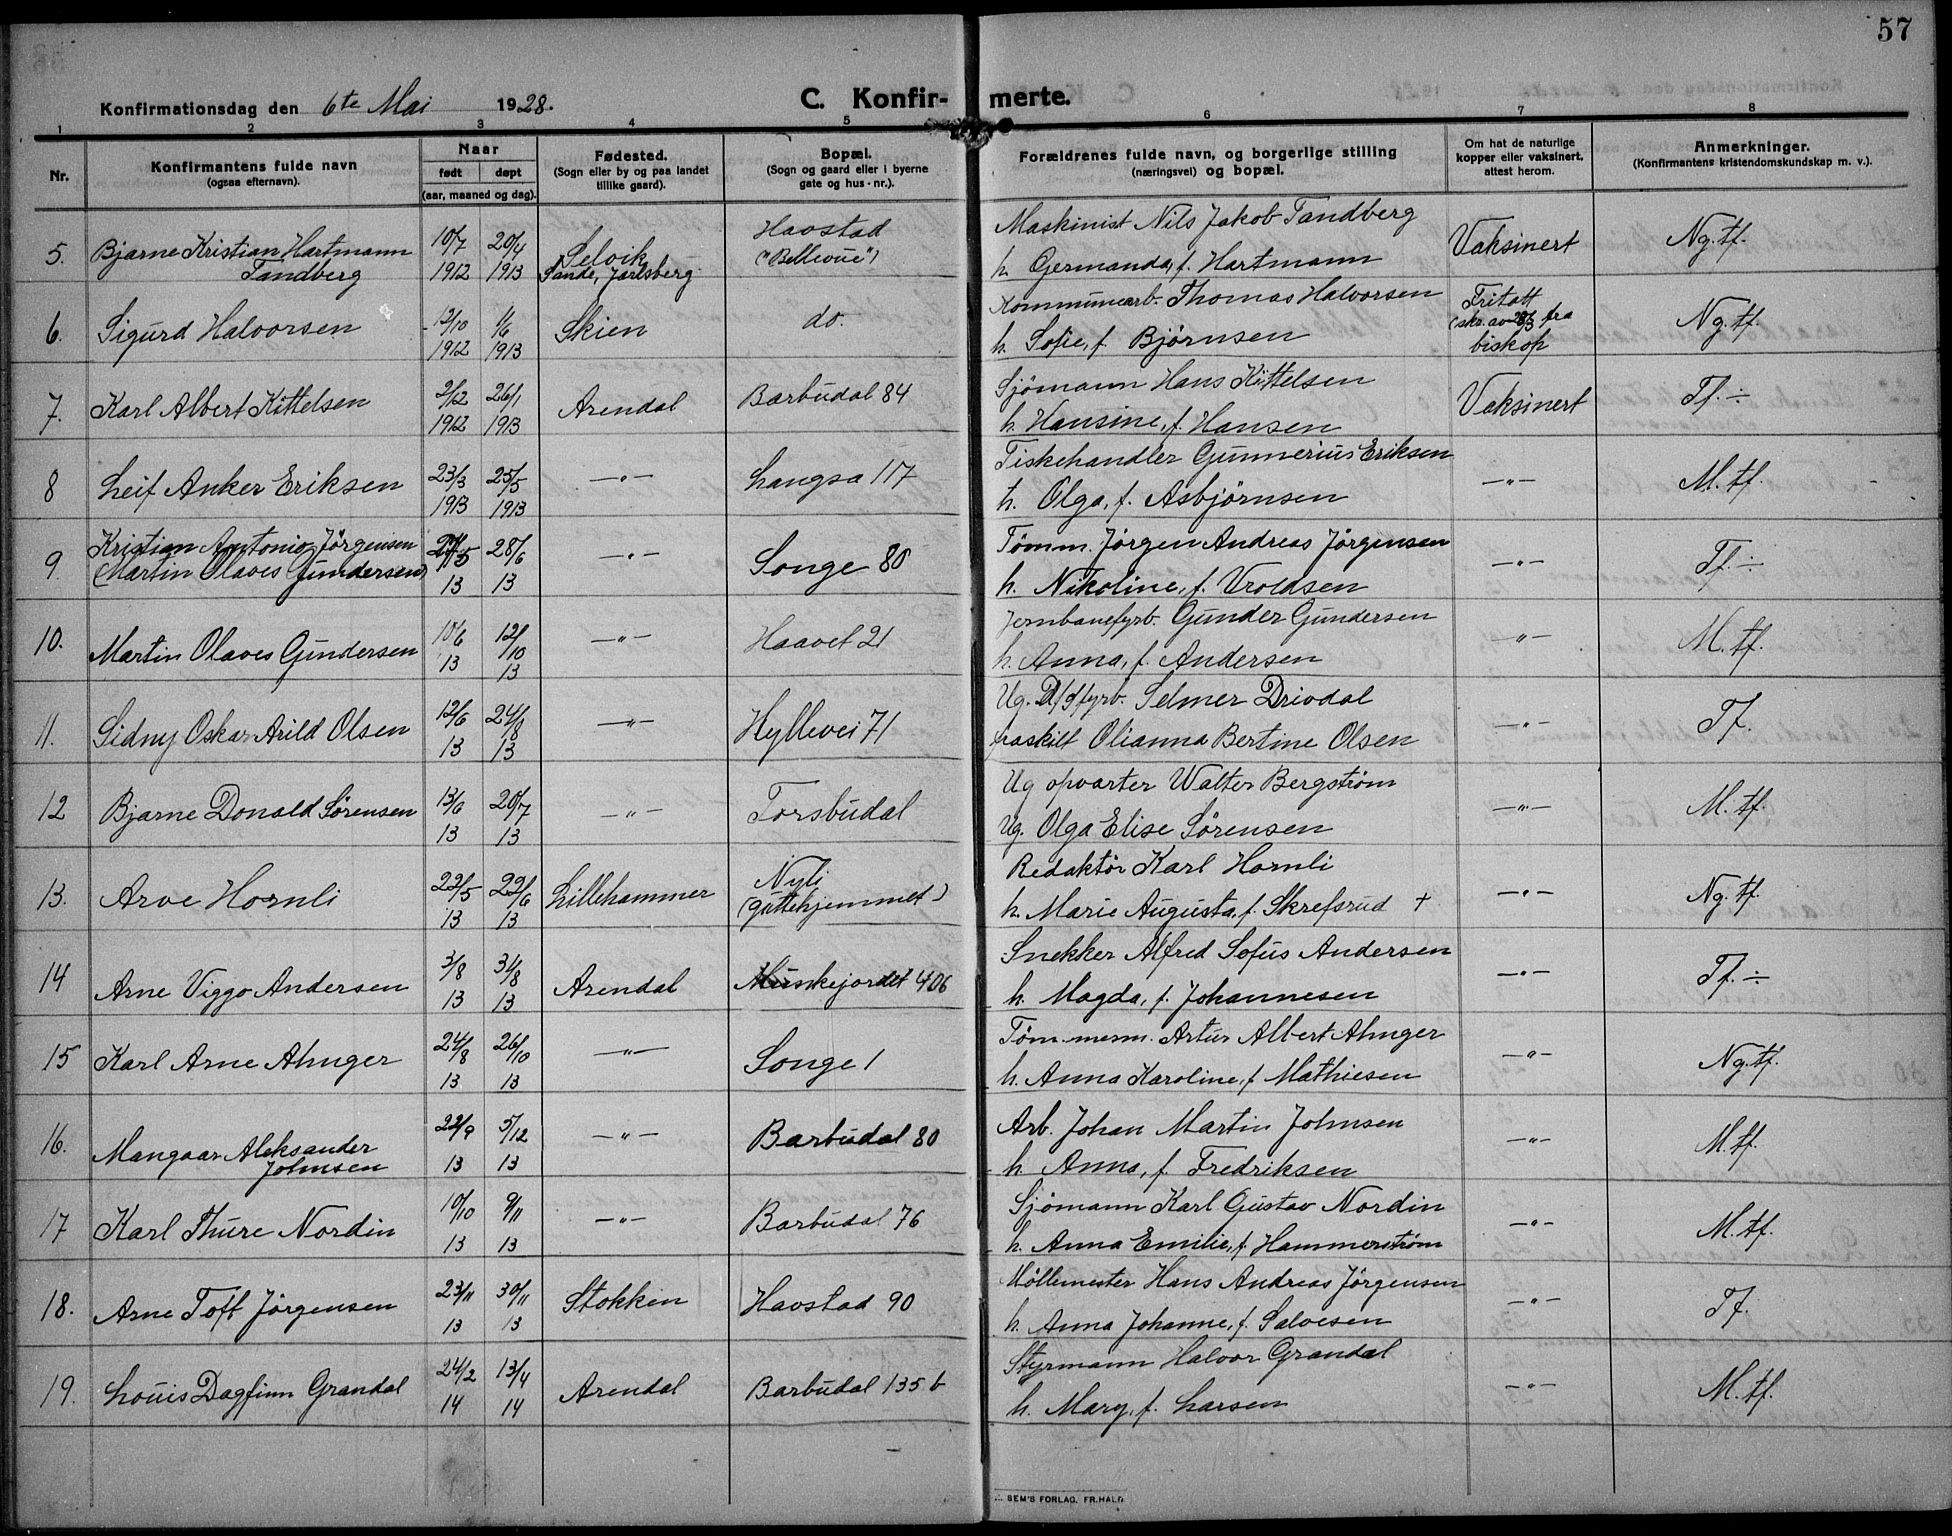 57
Konfirmationsdag den 6te Mai 1928.
C. Konfir- merte.
1 2 3 4 5 6 7 8
Nr.
Konfirmantens fulde navn
(ogsaa efternavn).
Naar
født døpt
(aar, maaned og dag).
Fødested.
(Sogn eller by og paa landet
tillike gaard).
Bopæl.
(Sogn og gaard eller i byerne
gate og hus-nr.).
Forældrenes fulde navn, og borgerlige stilling
(næringsvei) og bopæl.
Om hat de naturlige
kopper eller vaksinert,
attest herom.
Anmerkninger.
(Konfirmantens kristendomskundskap m. v.).
5. Bjarne Kristian Hartmann
Tandberg
10/7 20/4
1912 1913
Selvik
Sande, Jarlsberg.
Havstad
("Bellevue")
Maskinist Nils Jakob Tandberg
h. Germanda, f. Hartmann
Vaksinert
Ng. tf.
6. Sigurd Halvorsen
12/10 1/6
1912 1913
Skien
do.
Kommunearb. Thomas Halvorsen
h. Sofie, f. Bjørnsen
Fritatt
(skr. av 28/3 fra
biskop
Ng. tf.
7. Karl Albert Kittelsen
2/12 26/1
1912 1913
Arendal
Barbudal 84
Sjømann Hans Kittelsen
h. Hansine, f. Hansen
Vaksinert
Tf. ÷
8 Leif Anker Eriksen
23/3 25/5
1913 1913
—"—
Langsa 117
Fiskehandler Gunnerius Eriksen
h. Olga, f. Asbjørnsen
—"—
M. tf.
9. Kristian Antonio Jørgensen
(Martin Olaves Gundersen)
28/6
13 13
—"—
Songe 80
Tømm. Jørgen Andreas Jørgensen
h. Nikoline, f. Vroldsen
—"—
Tf. ÷
10. Martin Olaves Gundersen
10/6 12/10
13 13
—"—
Haavet 21
Jernbanefyrb. Gunder Gundersen
h. Anna, f. Andersen
—"—
M. tf.
11. Sidny Oskar Arild Olsen
12/6 24/8
13 13
—"—
Hyllevei 71
Ug. D/S fyrb. Selmer Drivdal
fraskilt Olianna Bertine Olsen
—"—
Tf.
12 Bjarne Donald Sørensen
13/6 20/7
13 13
—"—
Torsbudal
Ug opvarter Walter Bergstrøm
Ug. Olga Elise Sørensen
—"—
M. tf.
13. Arve Hornli
22/5 22/6
13 13
Lillehammer
Nyli
(guttehjemmet)
Redaktør Karl Hornli
h. Marie Augusta, f. Skrefsrud +
—"—
Ng. tf.
14 Arne Viggo Andersen
3/8 31/8
13 13
Arendal
406
Snekker Alfred Sofus Andersen
h. Magda, f. Johannesen
—"—
Tf. ÷
15 Karl Arne Alnger
24/8 26/10
13 13
—"—
Songe 1
Tømmerm. Artur Albert Alnger
h. Anna Karoline, f. Mathiesen
—"—
Ng. tf.
16. Mangaar Aleksander
Johnsen
22/9 5/12
13 13
—"—
Barbudal 80
Arb. Johan Martin Johnsen
h. Anna, f. Fredriksen
—"—
M. tf.
17 Karl Thure Nordin
10/10 9/11
13 13
—"—
Barbudal 76
Sjømann Karl Gustav Nordin
h. Anna Emilie, f. Hammerstrøm
—"—
M. tf.
18. Arne Toft Jørgensen
23/11 30/11
13 13
Stokken
Havstad 90
Møllemester Hans Andreas Jørgensen
h. Anna Johanne, f. Salvesen
—"—
Tf.
19. Louis Dagfinn Grandal
24/2 13/4
14 14
Arendal
Barbudal 135 b
Styrmann Halvor Grandal
h. Mary, f. Larsen
—"—
M. tf.
SEM'S FORLAG, FR.HALD